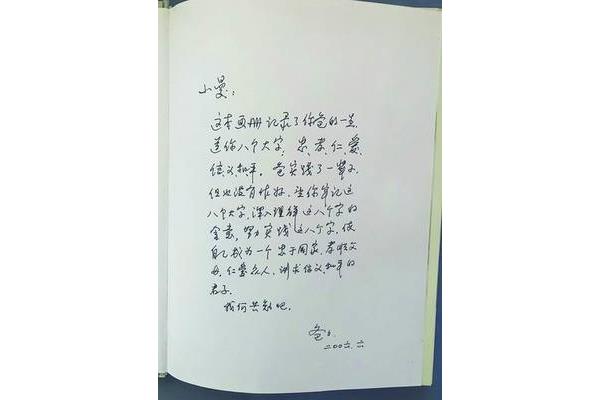 小曼：
这本画册记录了你爸的一生，
送你八个大字：忠、孝、仁、爱、
信、义、和平。爸实践了一辈子，
但也没有做好。望你牢记这
八个大字，深入理解这八个字的
含意，努力实践这八个字，使
自己成为一个忠于国家、孝敬父
母、仁爱众人、讲求信义、和平的
君子。
我们共勉吧。
爸爸
二00六.六